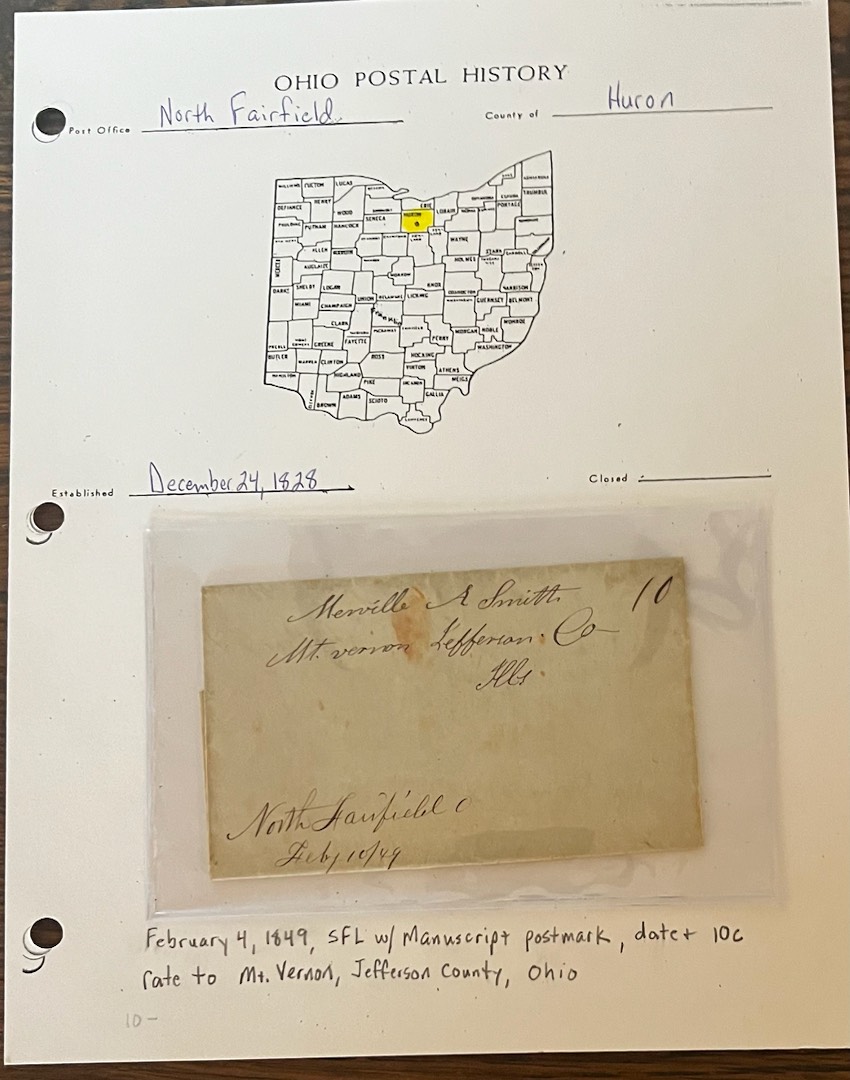 OHIO POSTAL HISTORY
Post Office North Fairfield County of Huron
WILLIAMS FULTON LUCAS
DEFIANCE HENRY WOOD
ERIE
HURON
SENECA
LORAIN
PORTAGE
TRUMBUL
PAULDING PUTNAM HANCOCK
ALLEN
WAYNE
STARK CARROLL
HOLMES
MERCER
AUGLAIZE
MORROW
KNOX
HARRISON
DARKE SHELBY LOGAN
UNION DELAWARE LICKING
GUERNSEY BELMONT
MIAMI CHAMPAIGN
CLARK
Franklin
MONROE
PERRY MORGAN NOBLE
WASHINGTON
PREBLE GREENE FAYETTE
BUTLER WARREN CLINTON ROSS HOCKING
VINTON ATHENS
HAMILTON HIGHLAND PIKE MEIGS
GALLIA
BROWN ADAMS SCIOTO
Established December 24, 1828 Closed
Merville A Smith 10
Mt. vernon Jefferson. Co
Ills.
North Fairfield O
Feby 10/49
February 4, 1849, SFL w/ Manuscript postmark, date + 10c
rate to Mt. Vernon, Jefferson County, Ohio
10-